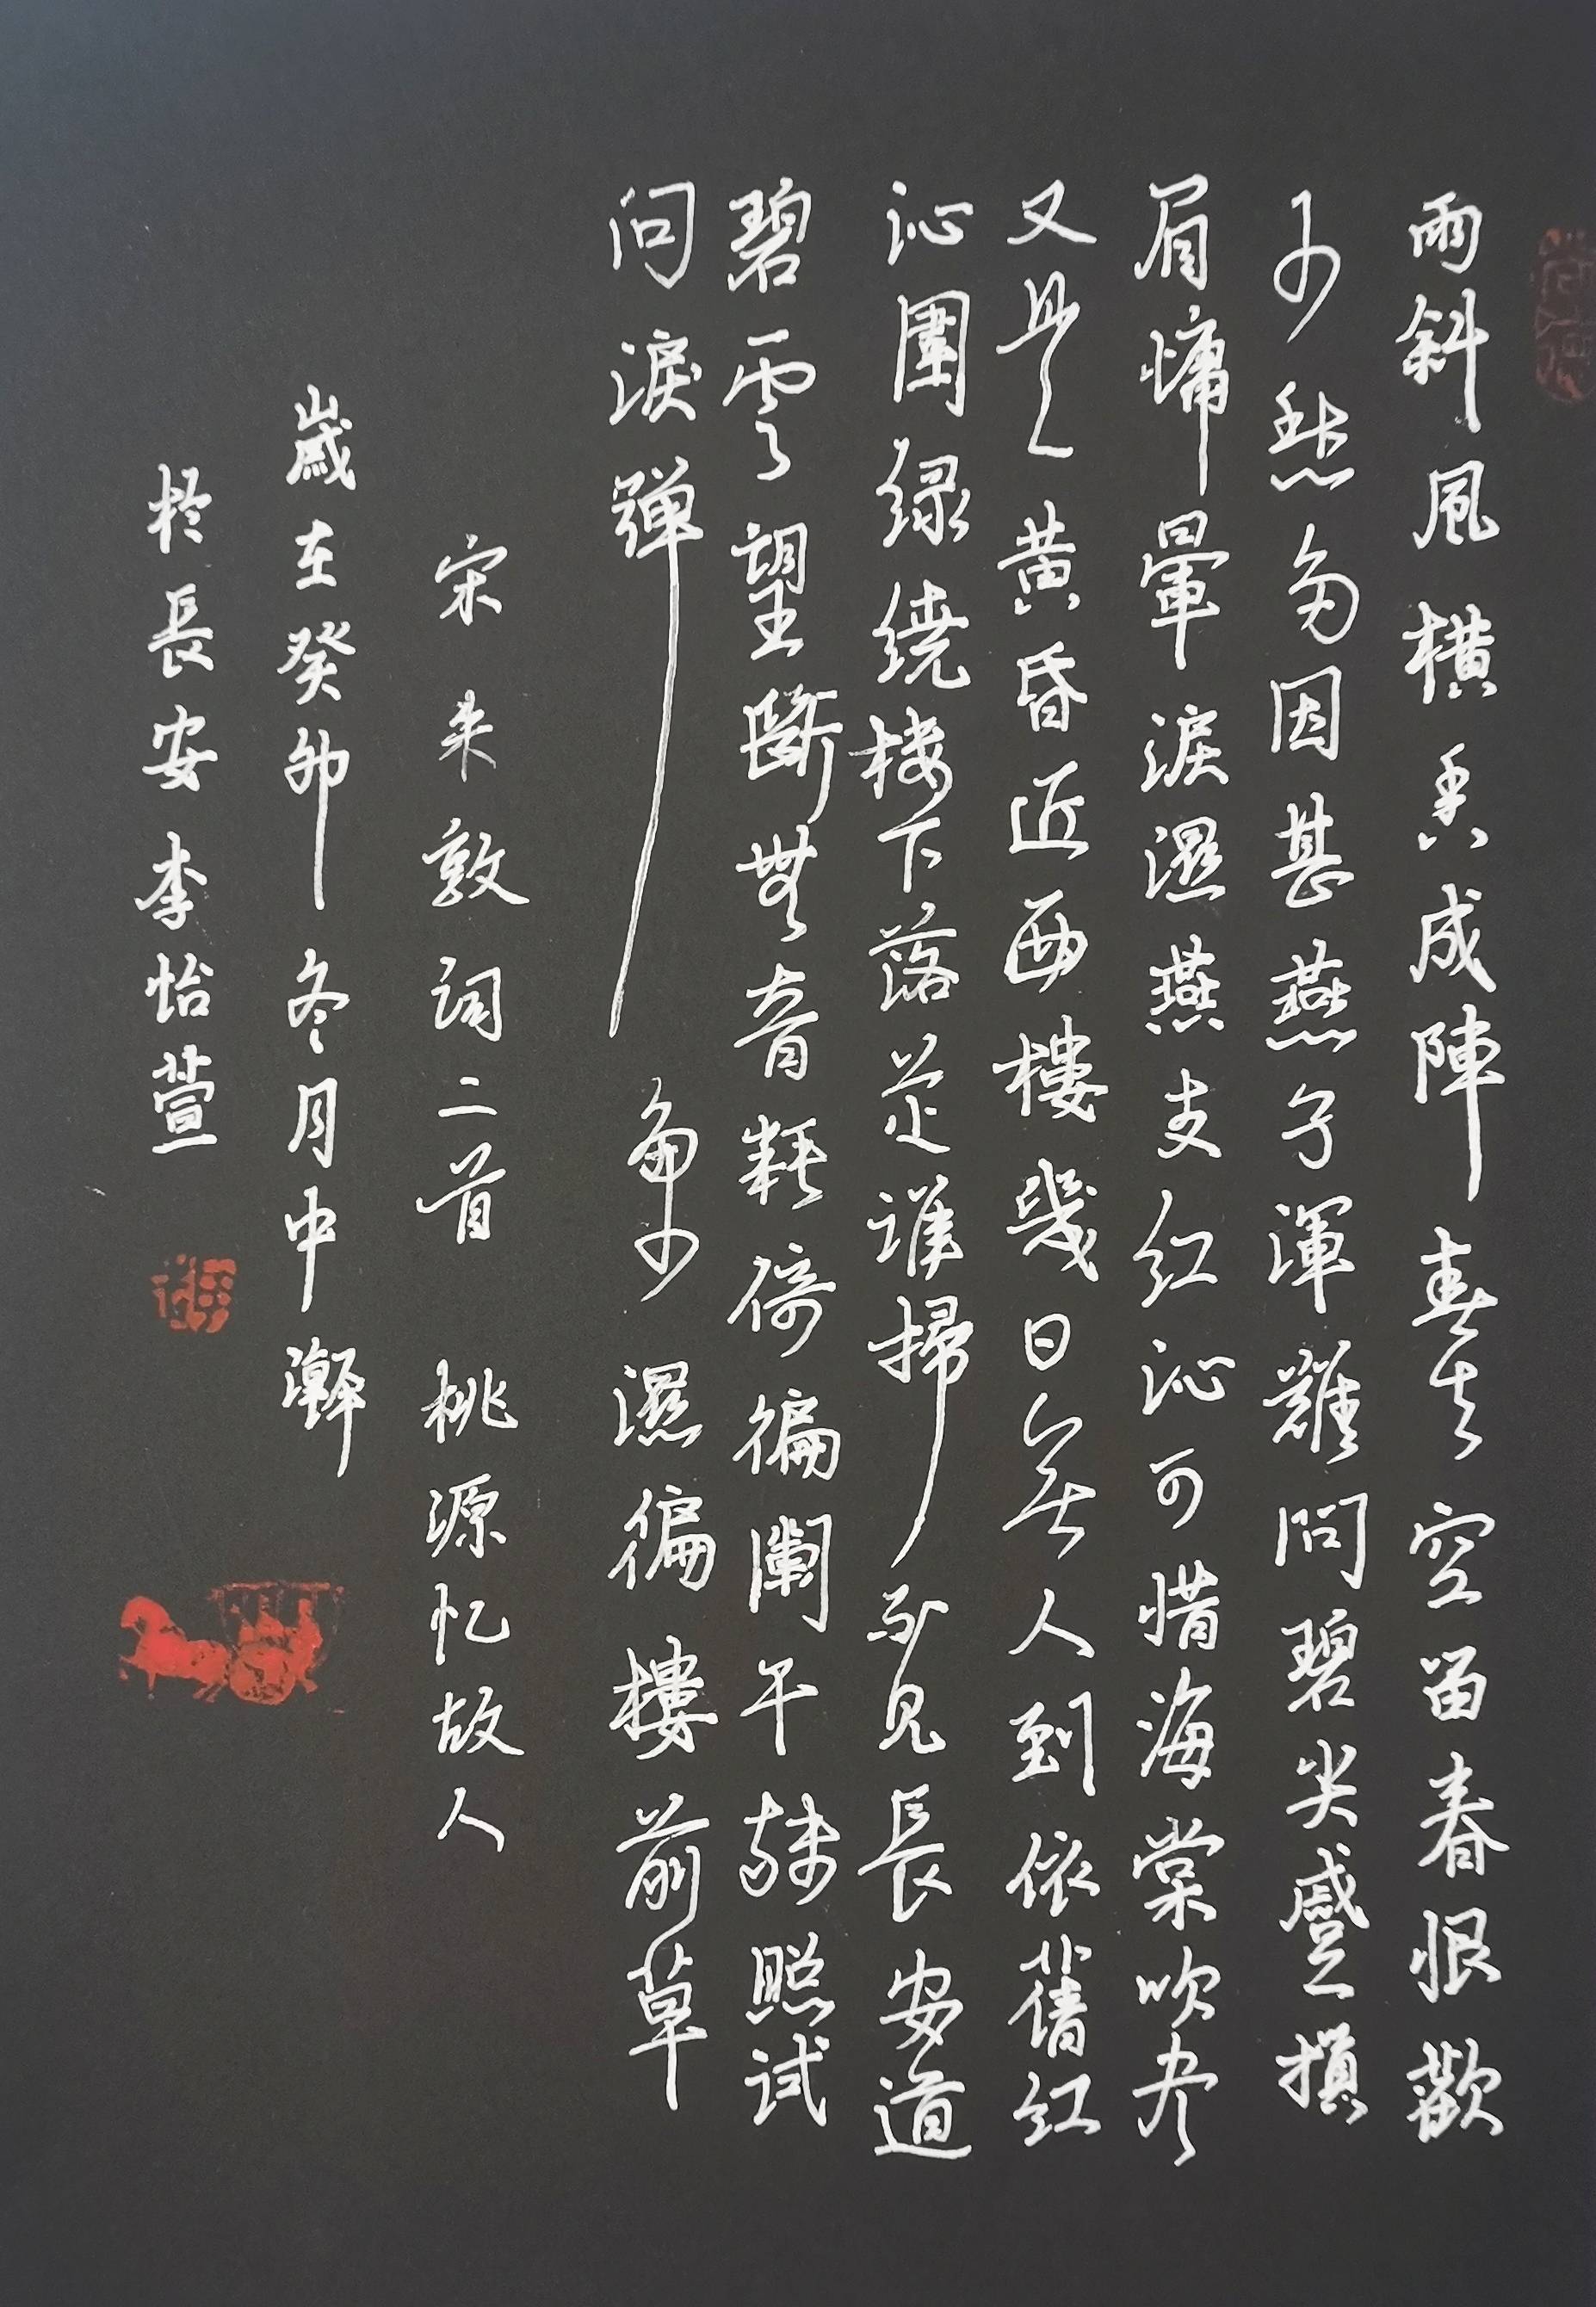 雨斜風橫香成陣春去空留春恨歡
少愁多因甚燕子渾難問碧尖蹙損
眉慵暈淚濕燕支紅沁可惜海棠吹尽
又是黃昏近西樓幾日無人到依舊紅
沁圍绿繞楼下落花誰掃不見長安道
碧雲望斷無音耗倚徧闌干殘照試
问淚彈多少濕徧樓前草
宋朱敦词二首 桃源忆故人
歲在癸卯冬月中澣
於長安李怡萱